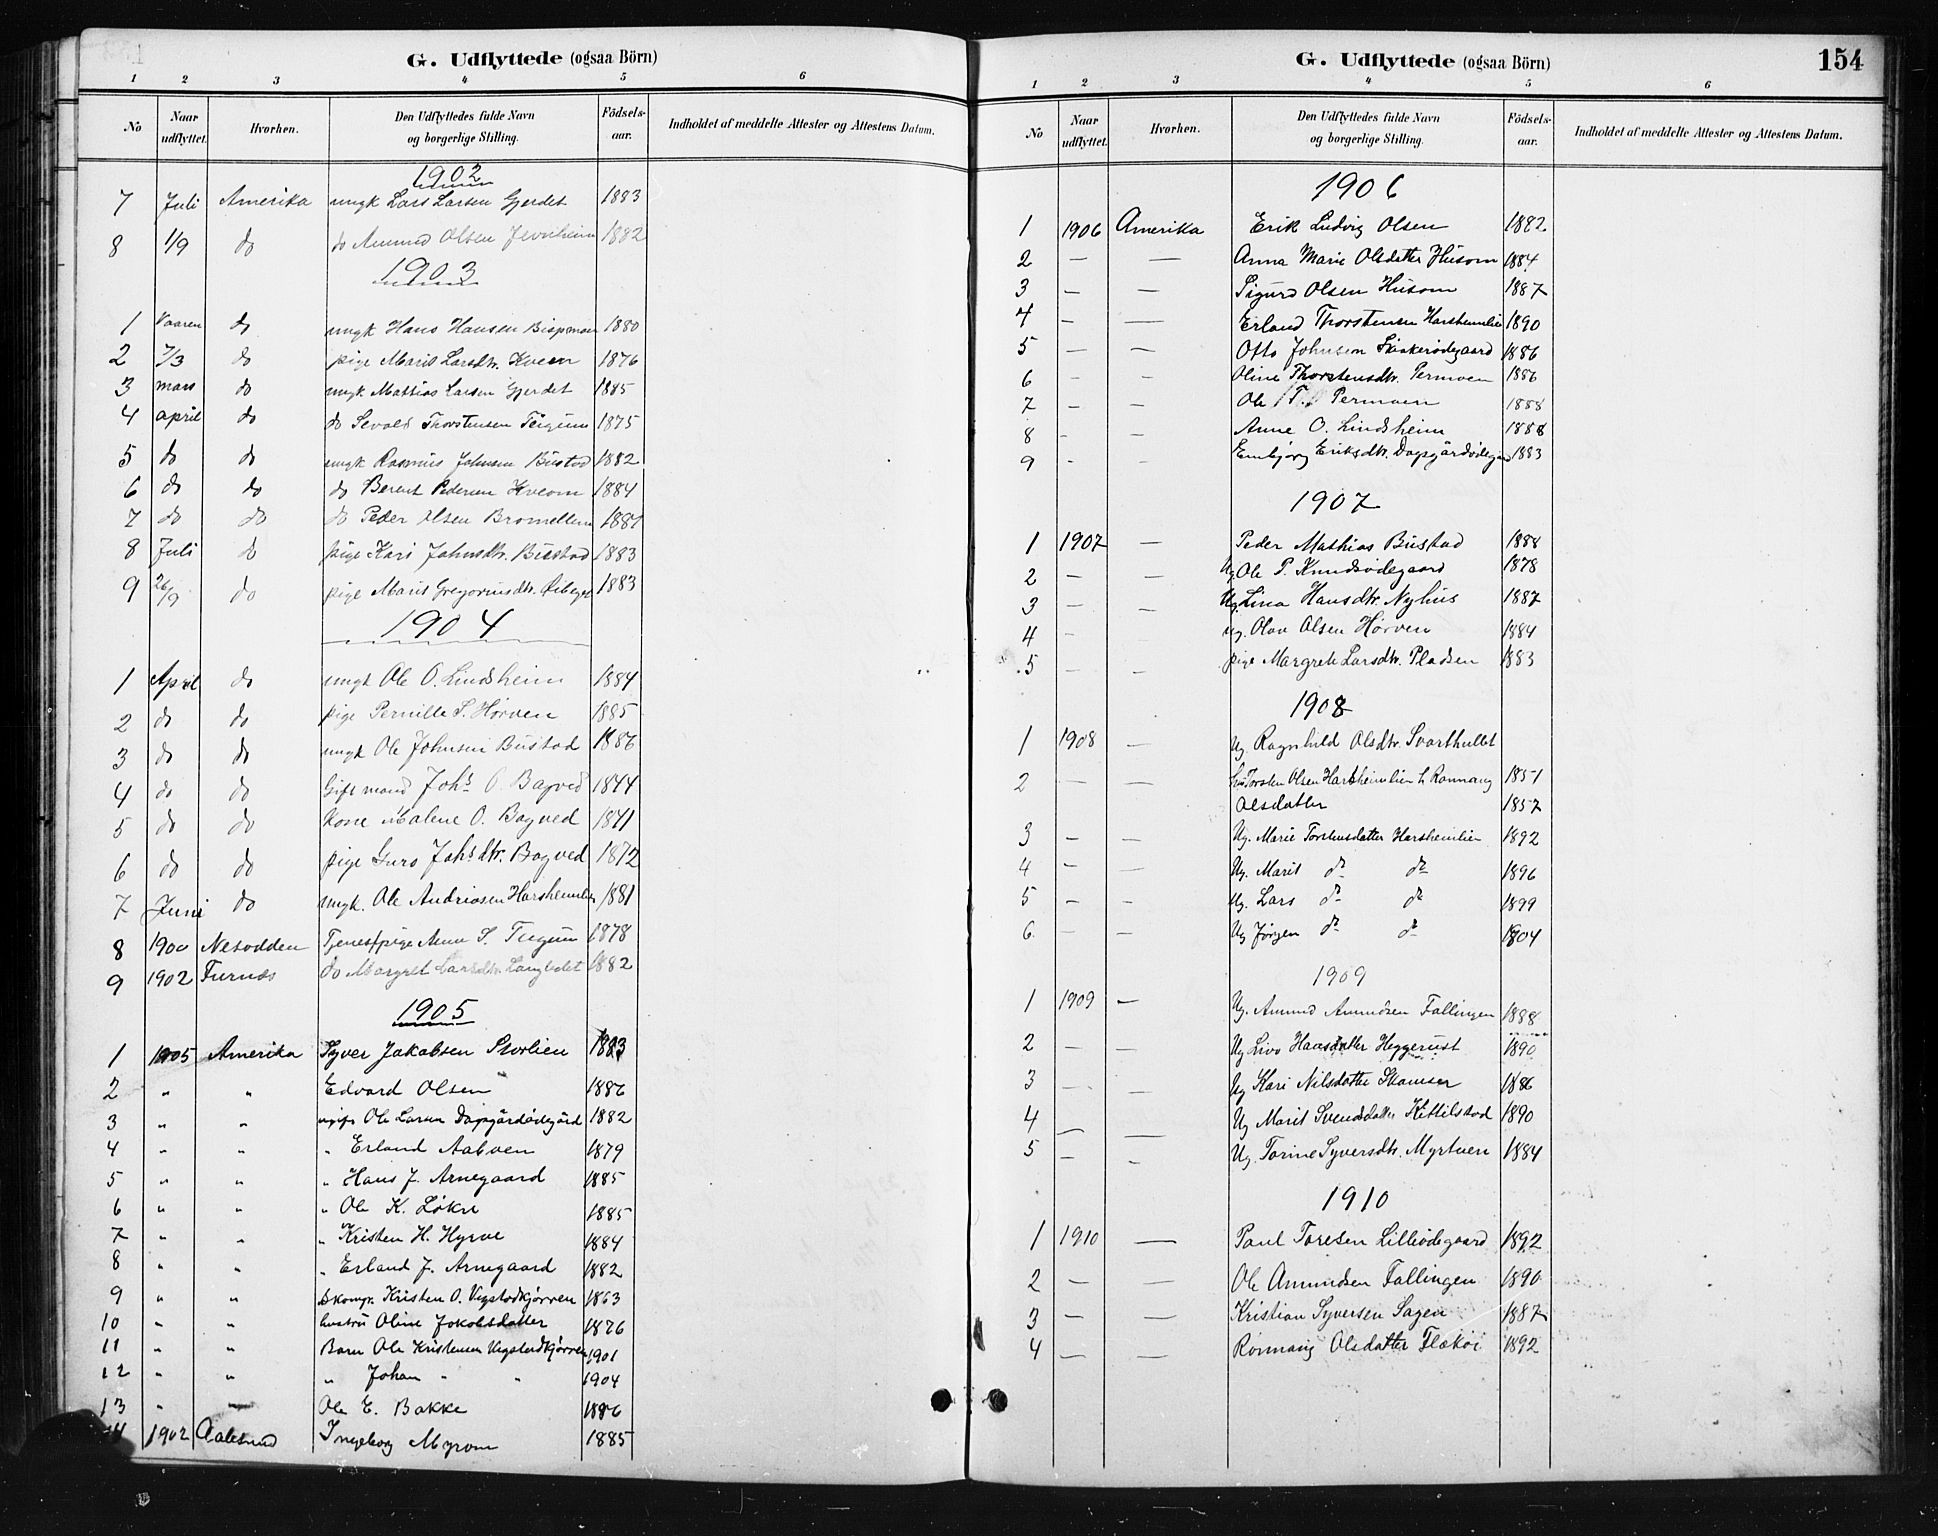 G. Udflyttede (ogsaa Börn)
1 2 3 4 5 6
No Naar udflyttet. Hvorhen. Den Udflyttedes fulde Navn og borgerlige Stilling. Fødsels-aar. Indholdet af meddelte Attester og Attestens Datum.
1902
7 Juli Amerika ungk Lars Larsen Gjerdet 1883
8 1/9 do do Amund Olsen 1882
1903
1 Vaaren do ungk Hans Hansen Bispmoen 1880
2 7/3 do pige Marit Larsdtr. Kveen 1876
3 mars do ungk Mathias Larsen Gjerdet 1885
4 april do do Sevald Thorstensen Teigum 1875
5 do do ungk Rasmus Johnsen Bustad 1882
6 do do do Berent Pedersen Kveom 1884
7 do do do Peder Olsen Bromellem 1881
8 Juli do pige Kari Johnsdtr. Bustad 1883
9 26/9 do pige Marit Gregoriusdtr. 1883
1904
1 April do ungk Ole O. Lindsheim 1884
2 do do pige Pernille S. Hørven 1885
3 do do ungk Ole Johnsen Bustad 1886
4 do do Gift mand Johs O. Bagved 1844
5 do do Kone Malene O. Bagved 1841
6 do do pige Guro Johsdtr. Bagved 1872
7 Juni do ungk. Ole Andriasen Harsheimlien 1881
8 1900 Nesodden Tjenestpige Anne S. Teigum 1878
9 1902 Furnæs do Margret Larsdtr. 1882
1905
1 1905 Amerika Syver Jakobsen Storlien 1883
2 " " Edvard Olsen 1886
3 " " ugift Ole Larsen Dapgårdødegård 1882
4 " " " Erland Aabven 1879
5 " " " Hans J. Arnegaard 1885
6 " " " Ole K. Løkre 1885
7 " " " Kristen H. Hyrve 1884
8 " " " Erland J. Arnegaard 1882
9 " " Skomgr. Kristen O. Vigstadkjørren 1863
10 " " hustru Oline Jakobsdatter 1876
11 " " Barn Ole Kristensen Vigstadkjørren 1901
12 " " " Johan " " 1904
13 " — Ole E. Bakke 1886
14 1902 Aalesund Ingeborg Myrom 1885
G. Udflyttede (ogsaa Börn) 154
1 2 3 4 5 6
No Naar udflyttet. Hvorhen. Den Udflyttedes fulde Navn og borgerlige Stilling. Fødsels-aar. Indholdet af meddelte Attester og Attestens Datum.
1906
1 1906 Amerika Erik Ludvig Olsen 1882
2 — — Anna Marie Olsdatter Husom 1884
3 — — Sigurd Olsen Husom 1887
4 — — Erland Thorstensen Harsheimlien 1890
5 — — Otto Johnsen 1886
6 — — Oline Thorstensdtr. Permoen 1886
7 — — Ole T. Permoen 1888
8 — — Anne O. Lindsheim 1888
9 — — Embjørg Eriksdtr. Dapgårdødegård 1883
1907
1 1907 — Peder Mathias Bustad 1888
2 — — Ug. Ole P. Knudsødegaard 1878
3 — — Ug. Lina Hansdtr. Nyhus 1887
4 — ug. Olav Olsen Hørven 1884
5 — — pige Margrete Larsdtr. Pladsen 1883
1908
1 1908 — Ug. Ragnhild Olsdtr. Svarthullet
2 — — Torsten Olsen Harsheimlien h Rannaug 1851
Olsdatter 1857
3 — — Ug. Marie Torstensdatter Harsheimlien 1892
4 — — Ug. Marit do do 1896
5 — — Ug. Lars do do 1899
6 — — Ug Jørgen do do 1904
1909
1 1909 — Ug. Amund Amundsen Fallingen 1888
2 — — Ug Live Hansdatter Heggerust 1890
3 — — Ug Kari Nilsdatter Skamsar 1886
4 — — Ug Marit Svendsdatter Kittilstad 1890
5 — — Ug. Torine Syversdtr. Myrtuen 1884
1910
1 1910 — Paul Toresen Lilleødegaard 1892
2 — — Ole Amundsen Fallingen 1890
3 — — Kristian Syversen Sagen 1887
4 — — Ronnaug Olsdatter Flækøi 1892